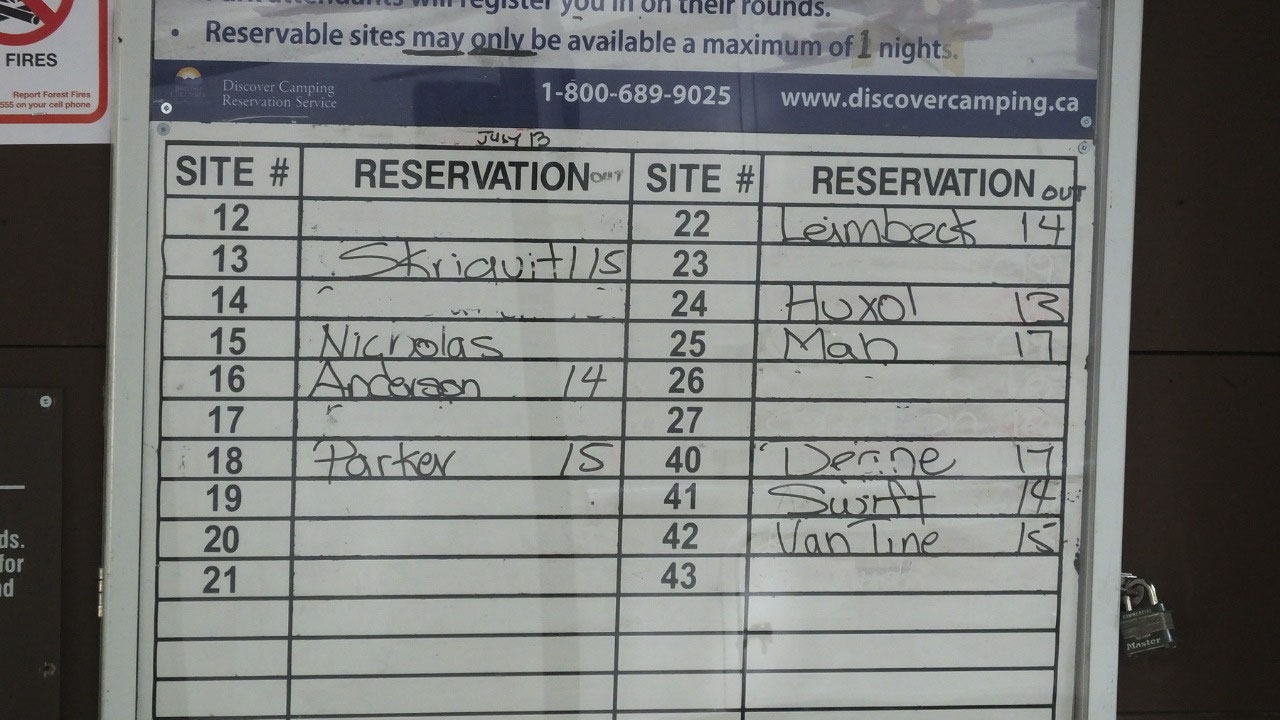 attendants will register you in on their rounds.
• Reservable sites may only be available a maximum of 1 nights.
FIRES
Report Forest Fires
555 on your cell phone
Discover Camping
Reservation Service
1-800-689-9025
www.discovercamping.ca
JULY 13
SITE # RESERVATION OUT SITE # RESERVATION OUT
12 22 Leimbeck 14
13 15 23
14 24 Huxol 13
15 Nicholas 25 Mah 17
16 Anderson 14 26
17 27
18 Parker 15 40 17
19 41 Swift 14
20 42 Van Tine 15
21 43
ds.
for
nd
Master